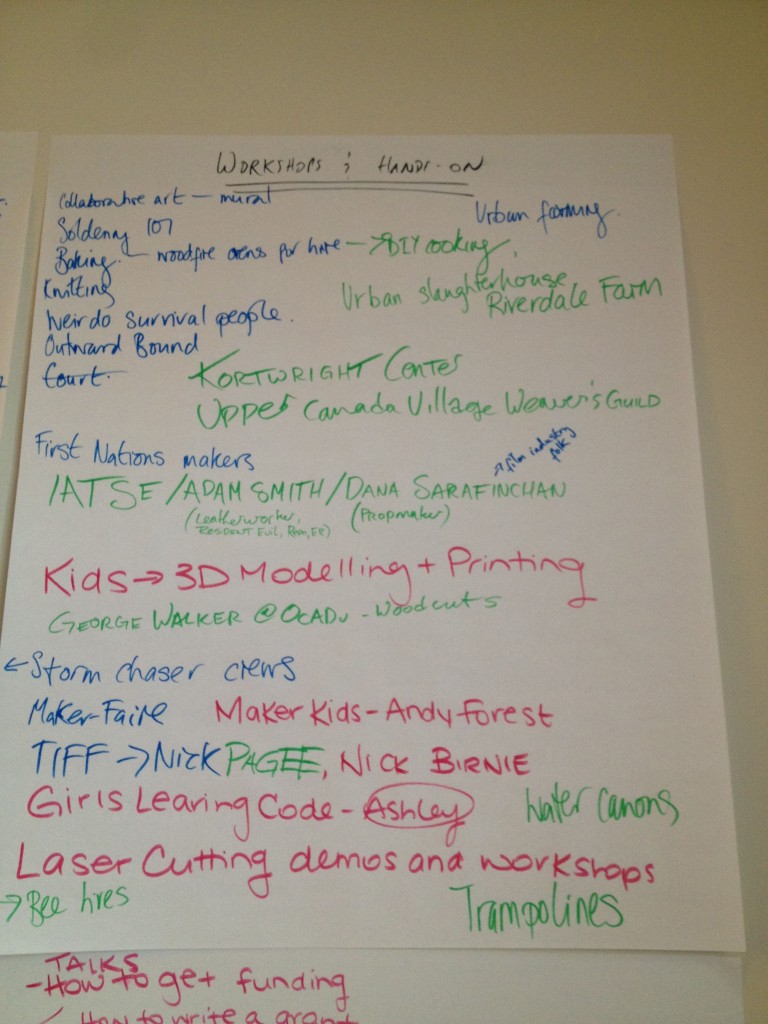 WORKSHOPS & HANDS-ON
Collaborative art — mural
Urban farming.
Soldering 101
Baking. — woodfire ovens for hire → DIY cooking,
Knitting
Urban slaughterhouse
Riverdale Farm
Weirdo survival people.
Outward Bound
Court.
KORTWRIGHT CENTER
UPPER Canada Village Weaver's GUILD
First Nations makers
→ film industry folk
IATSE / ADAM SMITH / DANA SARAFINCHAN
(Leatherworker, (Propmaker)
RESIDENT EVIL,
Kids → 3D Modelling + Printing
GEORGE WALKER @ OCADU - Woodcuts
← Storm chaser crews
Maker-Faire Maker Kids - Andy Forest
TIFF → Nick PAGEE, NICK BIRNIE
Girls Learing Code - Ashley
Water canons
Laser Cutting demos and workshops
→ Bee hives
Trampolines
TALKS
- How to get funding
How to write a grant